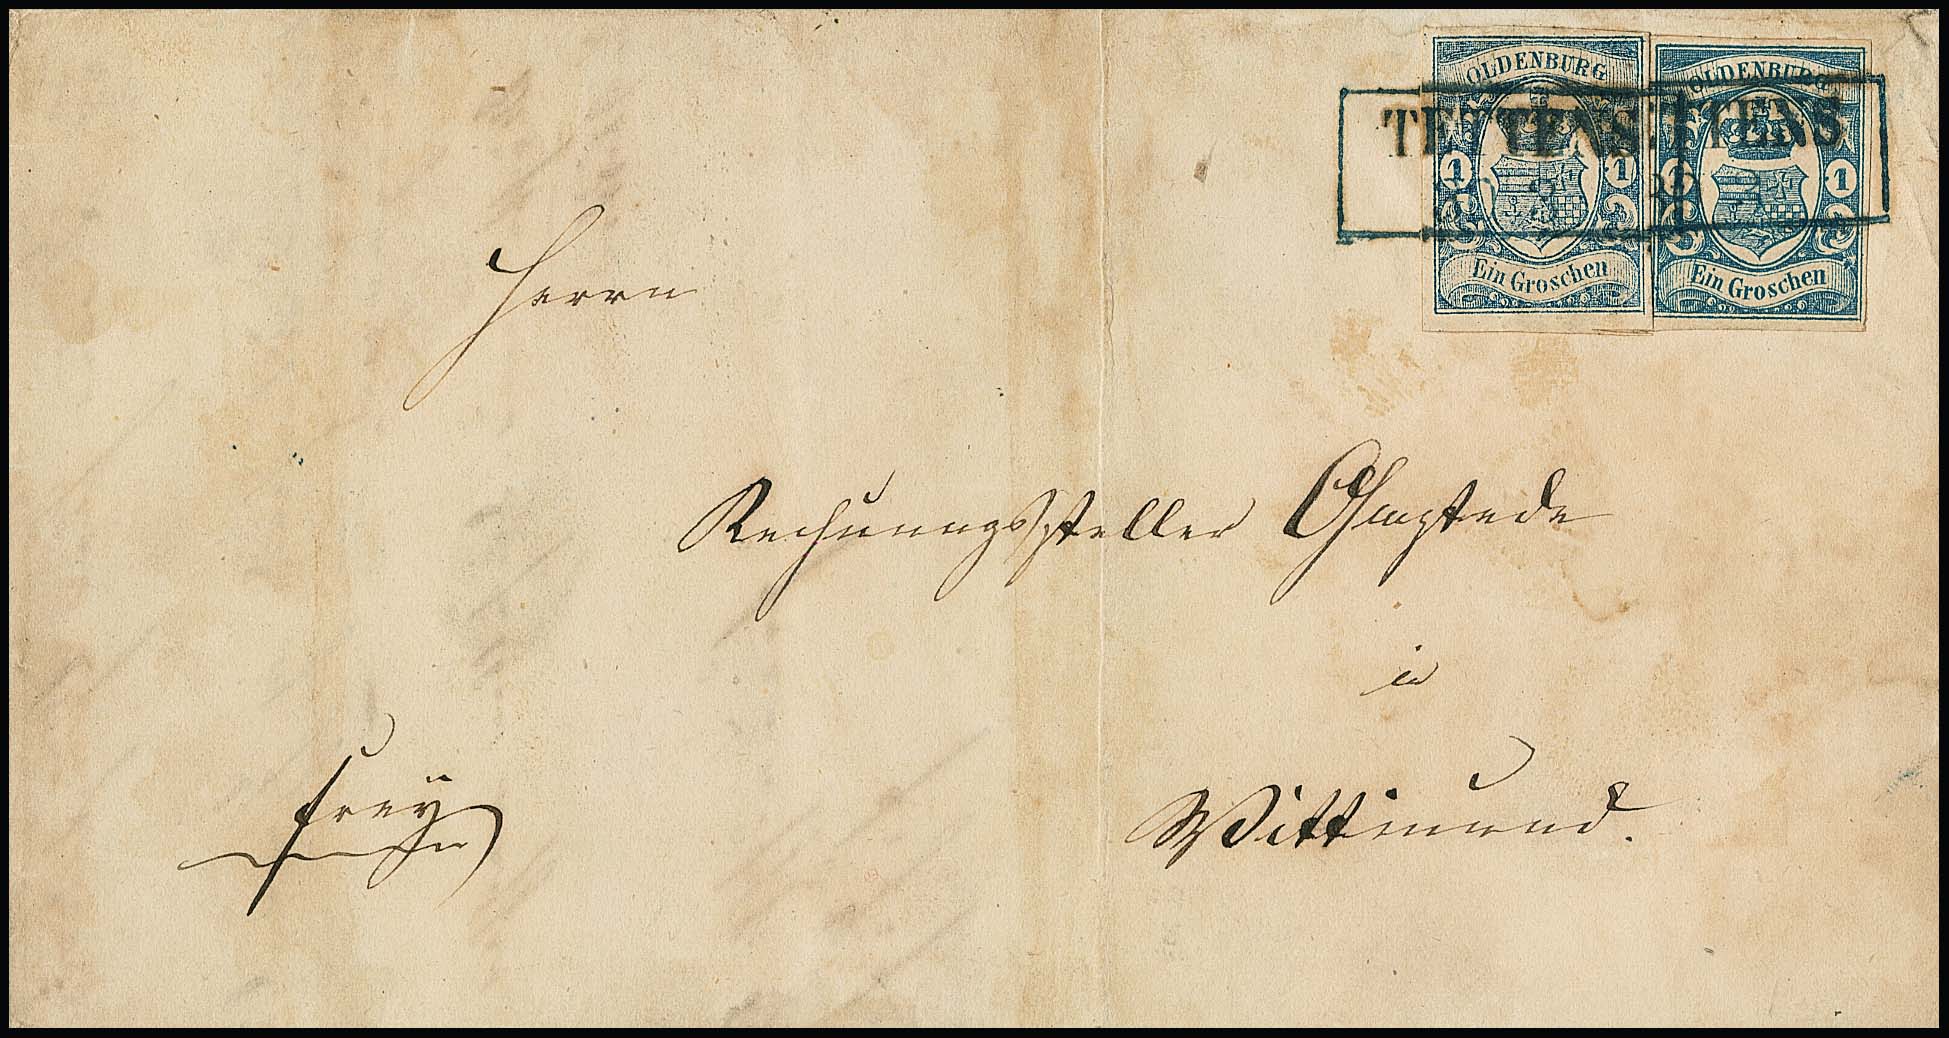 OLDENBURG OLDENBURG
TETTENS TETTENS
1 1 1 1
Ein Groschen Ein Groschen
Herrn
Rechnungssteller
in
frey
Wittmund.